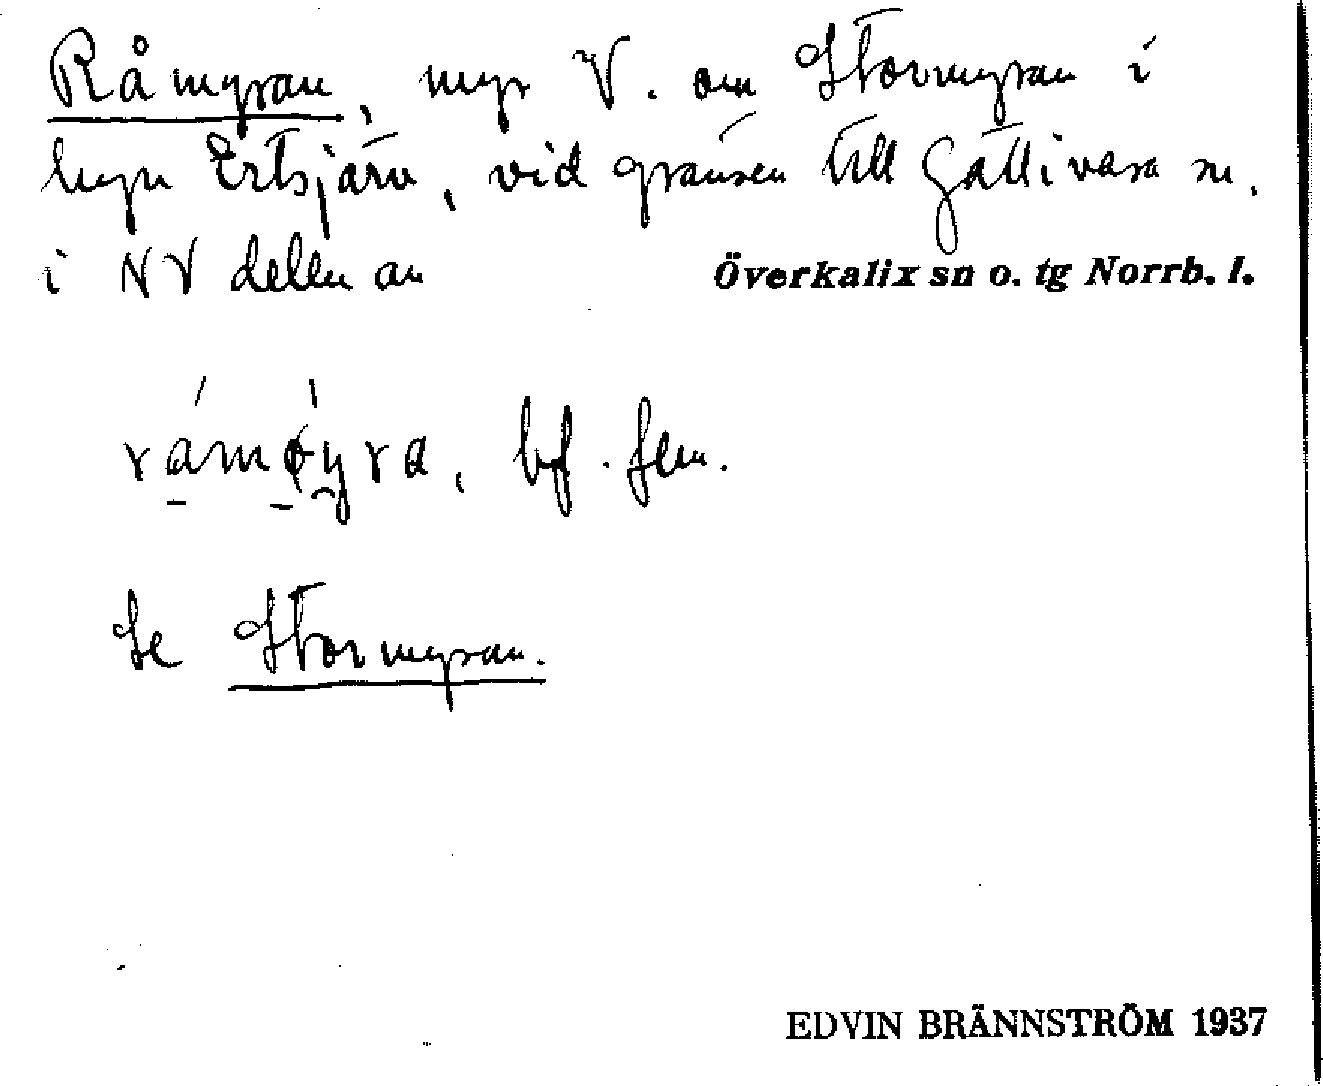 Råmyran, myr V. om Stormyran i
byn Ertsjärv, vid gränsen till Gällivara sn.
i NV delen av Överkalix sn o. tg Norrb. l.
råmøyra, bf. fem.
Se Stormyran.
EDVIN BRÄNNSTRÖM 1937